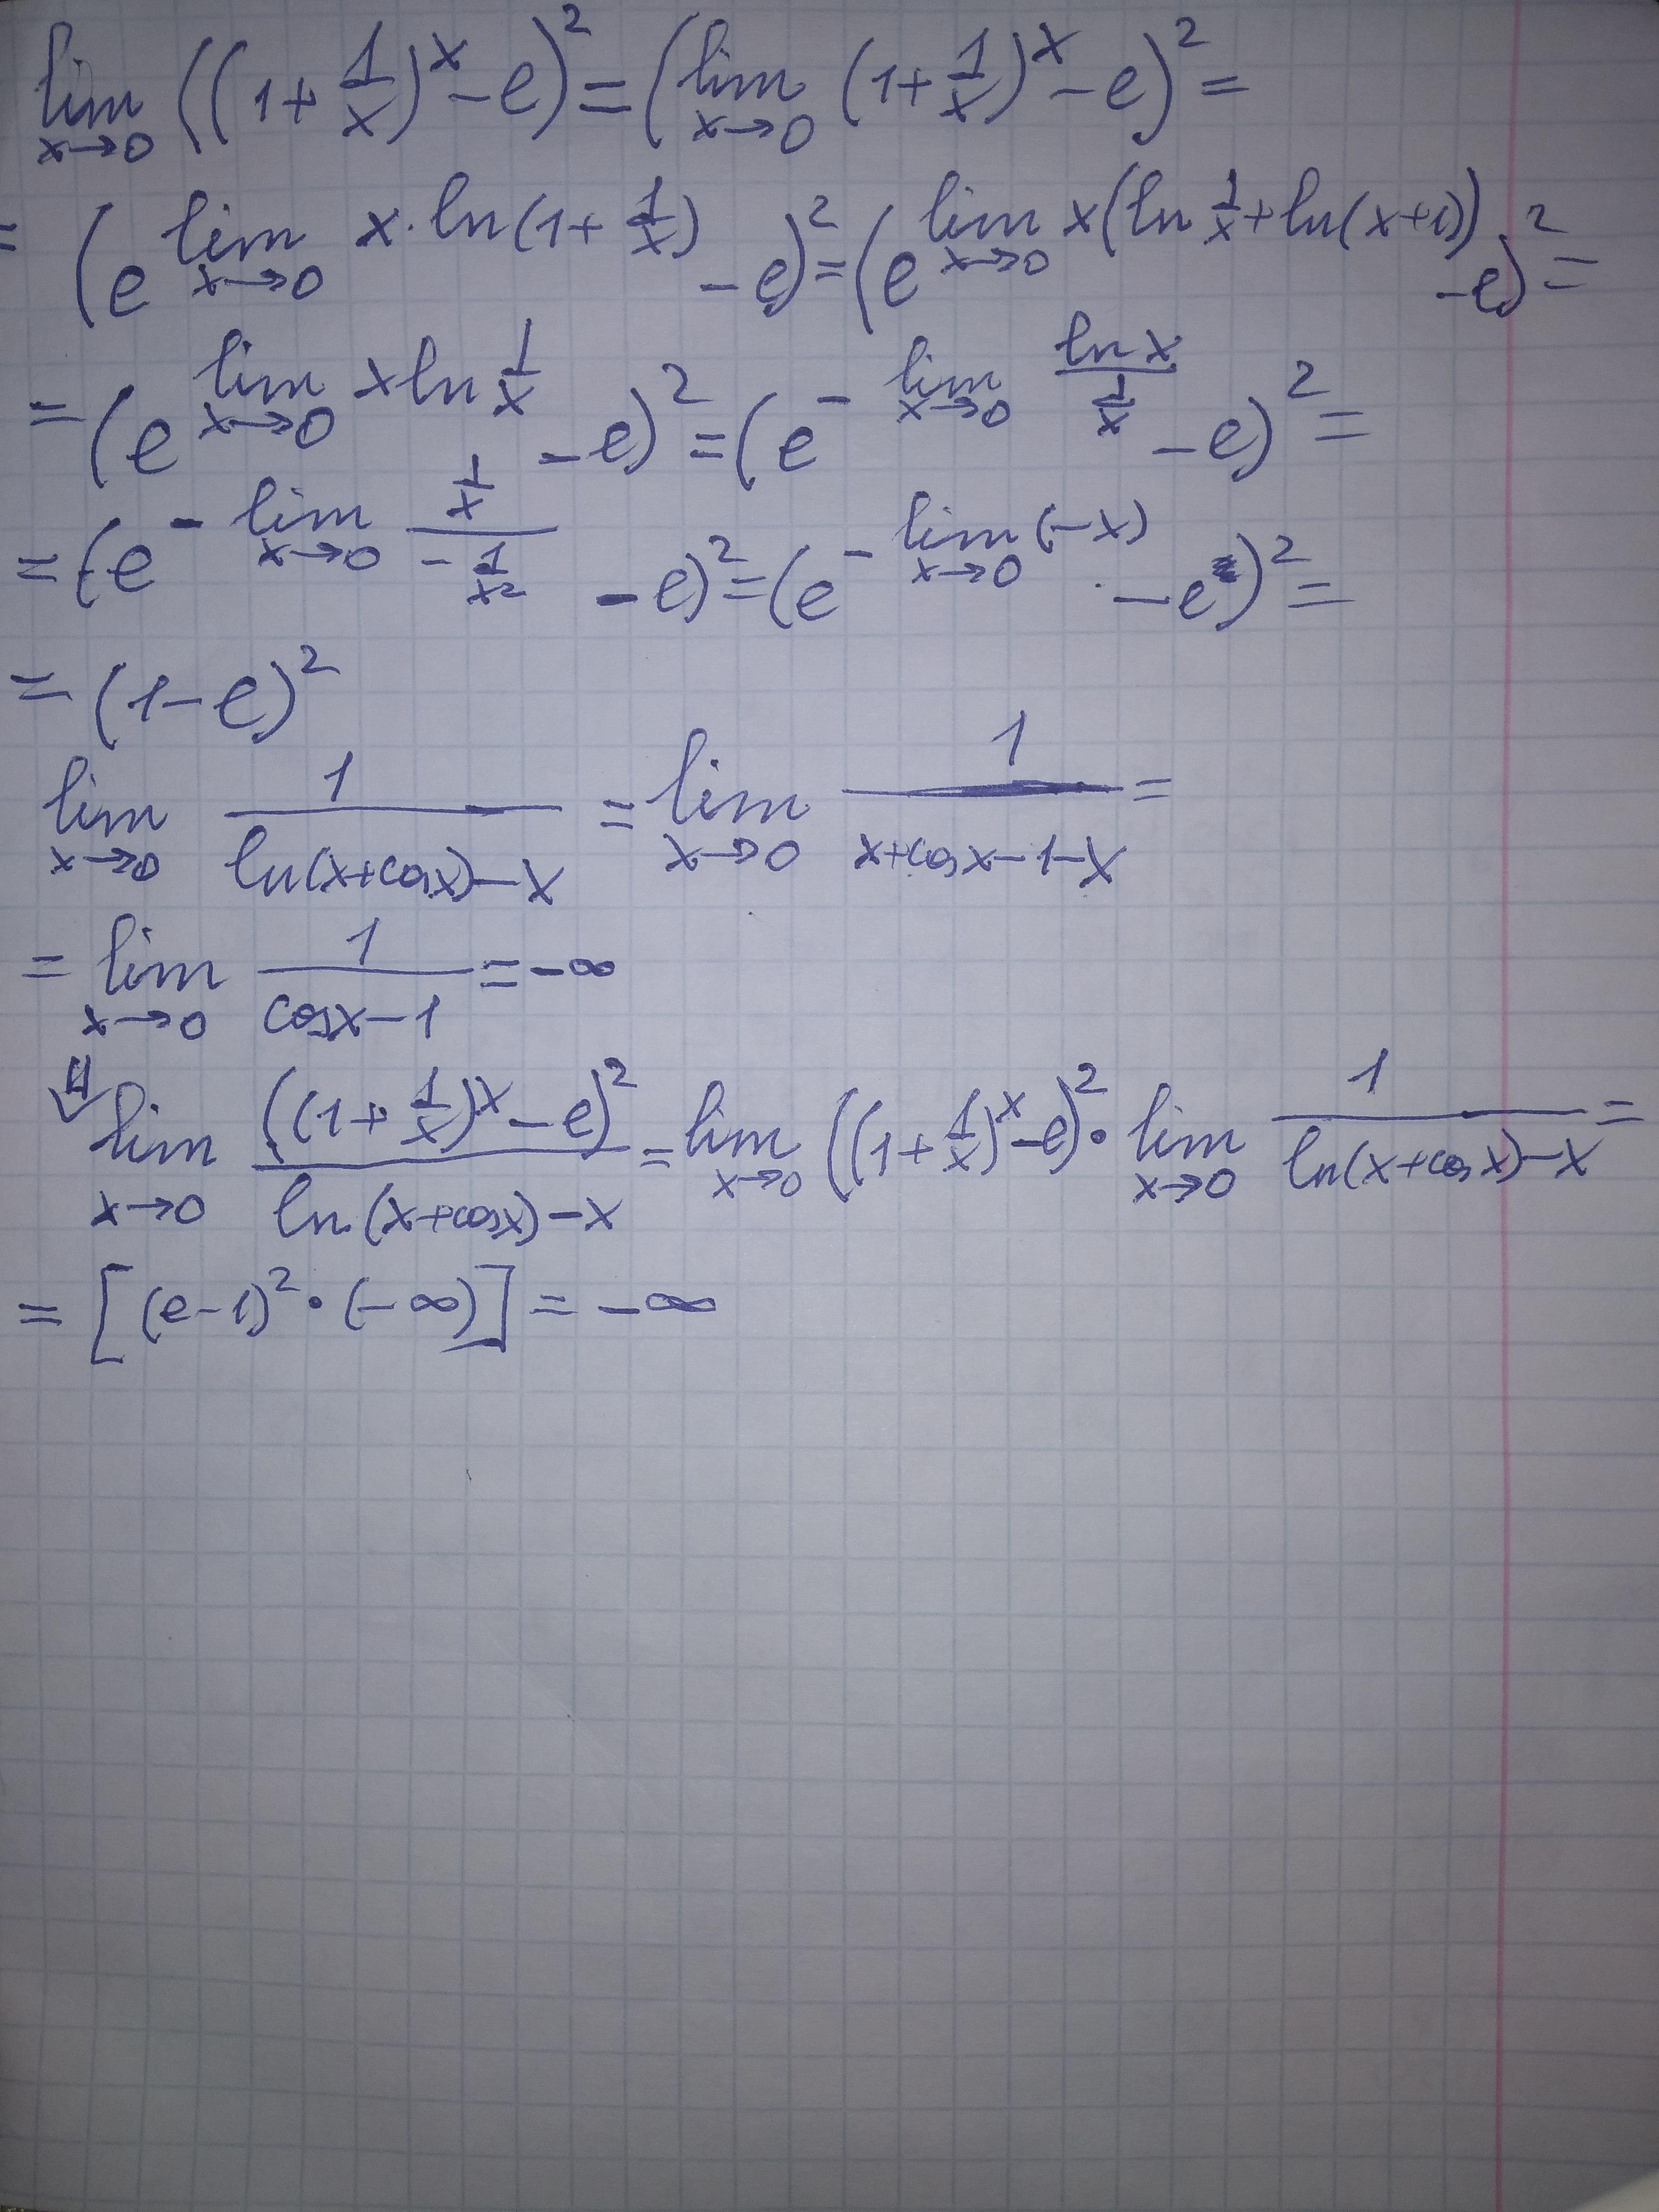 lim x→0 ((1+1/x)^x-e)^2=(lim x→0 (1+1/x)^x-e)^2=
=(e^(lim x→0 x·ln(1+1/x))-e)^2=(e^(lim x→0 x(ln 1/x+ln(x+1)))-e)^2=
=(e^(lim x→0 x ln 1/x)-e)^2=(e^(-lim x→0 ln x/(1/x))-e)^2=
=(e^(-lim x→0 (1/x)/(-1/x^2))-e)^2=(e^(-lim x→0 (-x))-e)^2=
=(1-e)^2
lim x→0 1/(ln(x+cosx)-x)=lim x→0 1/(x+cosx-1-x)=
=lim x→0 1/(cosx-1)=-∞
⇓ lim x→0 ((1+1/x)^x-e)^2/(ln(x+cosx)-x)=lim x→0 ((1+1/x)^x-e)^2·lim x→0 1/(ln(x+cosx)-x)=
=[(e-1)^2·(-∞)]=-∞